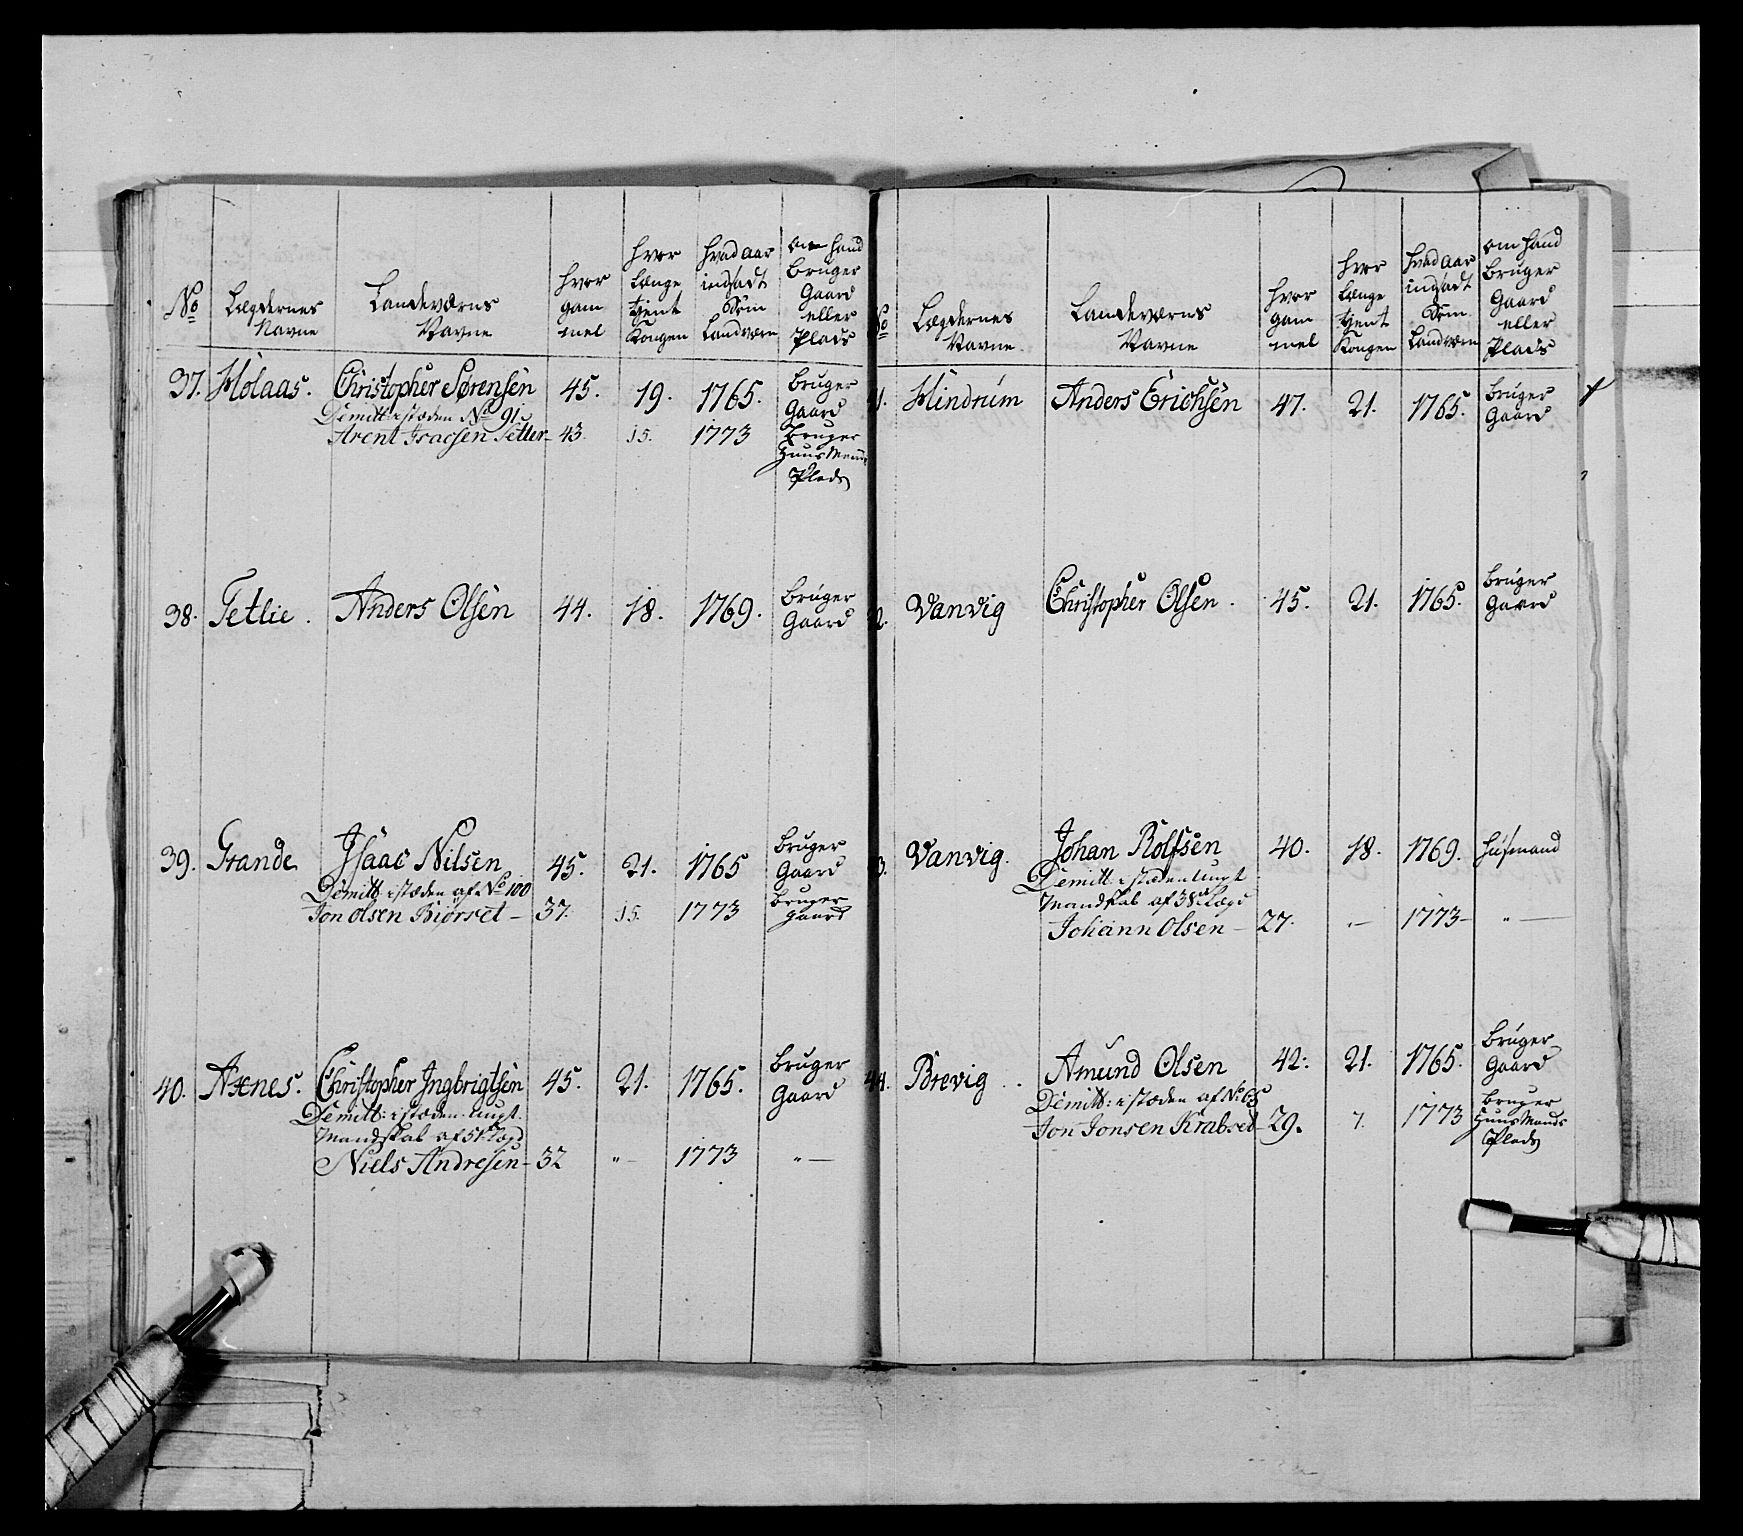 No
Lægdernes
Navne
Landeværns
Navne
hvor
gam
mel
hvor
længe
tjent
Kongen
hvad aar
indsadt
Som
Landværn
om hand
bruger
Gaard
eller
Plads
37. Molaas. Christopher Sørensen 45. 19. 1765. bruger
Gaard
Demitt: i stæden No 91
Arent Isacsen Setter - 43. 15. 1773 bruger
Huus Mands
Plads
38. Tetlie. Anders Olsen 44. 18. 1769. bruger
Gaard
39. Grande Isaac Nilsen 45. 21. 1765 bruger
Gaard
Demitt: i stæden af No 100
Jon Olsen Biørset - 37. 15. 1773 bruger
Gaard
40. Axnes. Christopher Ingbrigtsen 45. 21. 1765. bruger
Gaard
Demitt: i stæden ungt
Mandskab af 51 Lægd
Niels Andresen - 32 " - 1773 " -
No
Lægdernes
Navne
Landeværns
Navne
hvor
gam
mel
hvor
længe
tjent
Kongen
hvad aar
indsadt
Som
Landværn
om hand
bruger
Gaard
eller
Plads
1. Mindrum Anders Erichsen 47. 21. 1765. bruger
Gaard
2. Vanvig Christopher Olsen. 45. 21. 1765. bruger
Gaard
3. Vanvig. Johan Rolfsen 40. 18. 1769. husmand
Demitt: i stæden ungt
Mandskab af 38 Lægd
Johann Olsen - 27. " - 1773 - " -
44. Brevig.. Amund Olsen 42: 21. 1765. bruger
Gaard
Demitt: i stæden af No 65
Jon Jonsen Krabset - 29. 7. 1773 bruger
Huus Mands
Plads